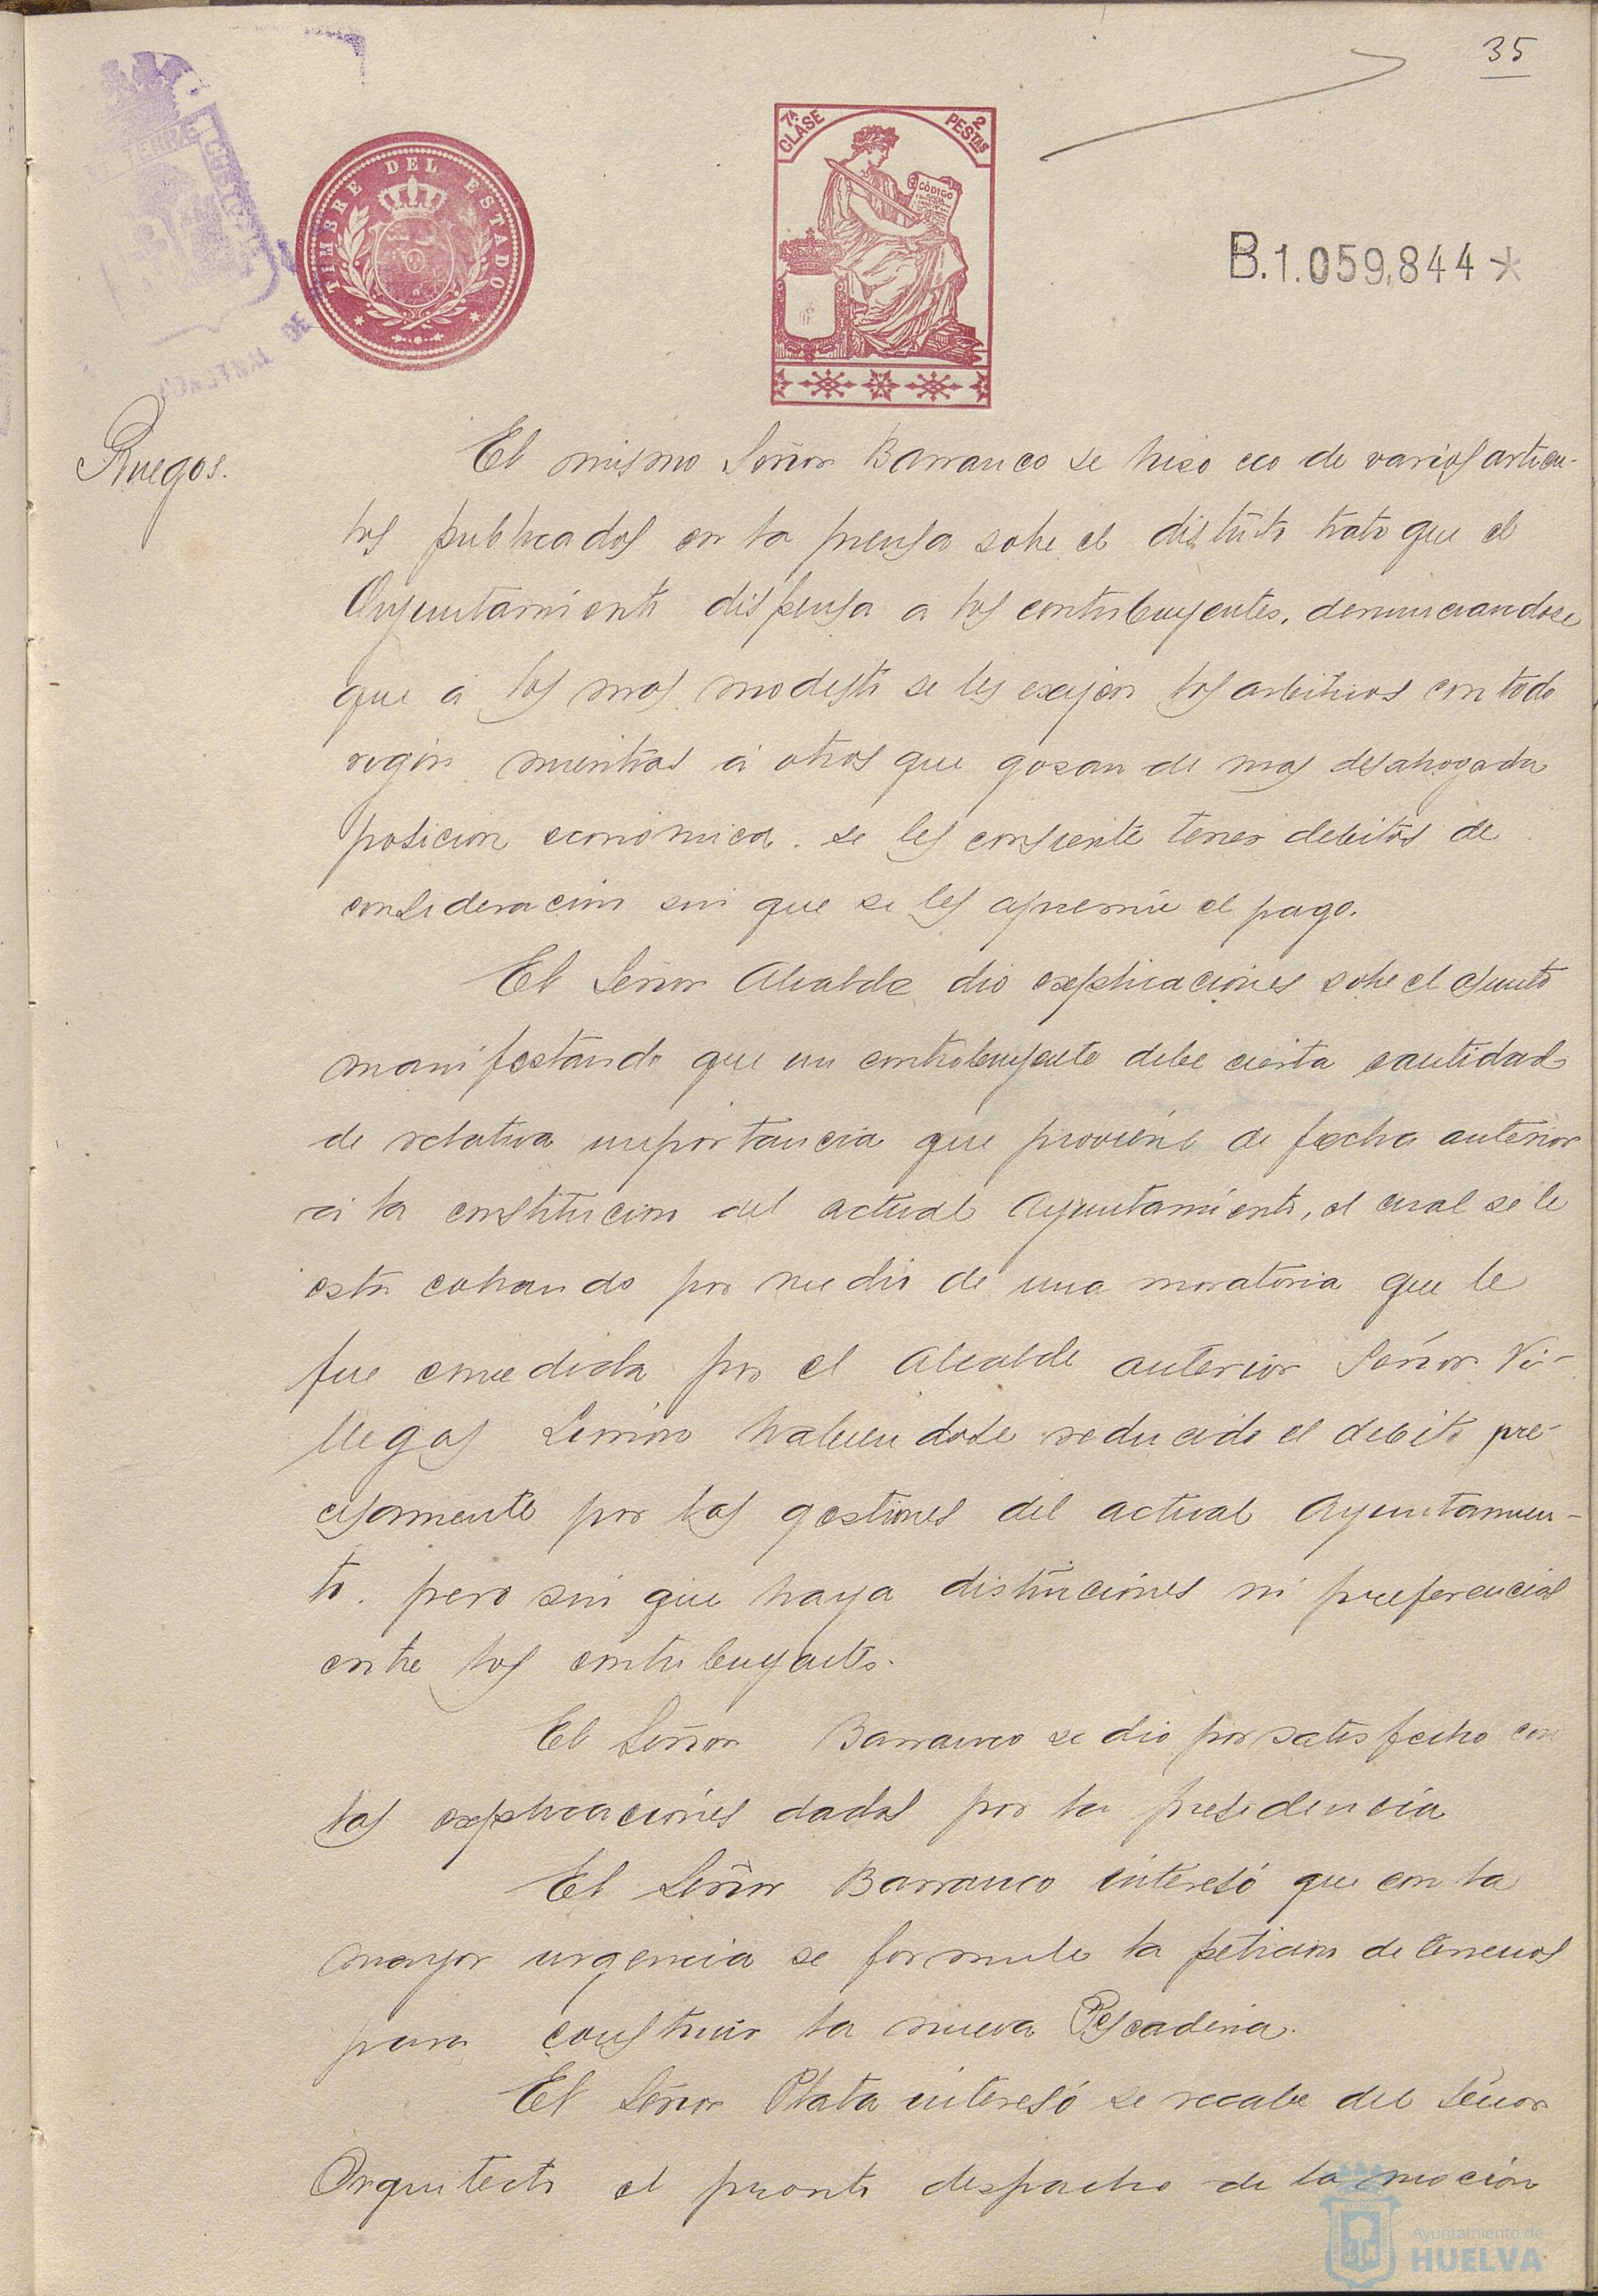 35
TIMBRE DEL ESTADO
7ª CLASE
2 PESTAS
CÓDIGO
B.1.059,844*
Ruegos.
El mismo Señor Barranco se hiso eco de varios articu-
los publicados en la prensa sobre el distinto trato que el
Ayuntamiento dispensa a los contribuyentes, denunciandose
que á los mas modesto se les exijen los arbitrios con todo
rigor mientras á otros que gosan de mas desahogada
posicion económica. se les consiente tener debitos de
consideracion sin que se les apremie el pago.
El Señor Alcalde dio explicaciones sobre el asunto
manifestando que un contribuyente debe cierta cantidad
de relativa importancia que proviene de fecha anterior
á la constitucion del actual Ayuntamiento, el cual se le
esta cobrando por medio de una moratoria que le
fue concedida por el Alcalde anterior Señor Vi-
llegas habiendose reducido el debito pre-
cisamente por las gestiones del actual Ayuntamien-
to. pero sin que haya distinciones ni preferencias
entre los contribuyentes.
El Señor Barranco se dio por satisfecho con
las explicaciones dadas por la presidencia
El Señor Barranco interesó que con la
mayor urgencia se formule la peticion de terrenos
para construir la nueva Pescaderia.
El Señor Plata interesó se recabe del Señor
Arquitecto el pronto despacho de la moción
Ayuntamiento de
HUELVA